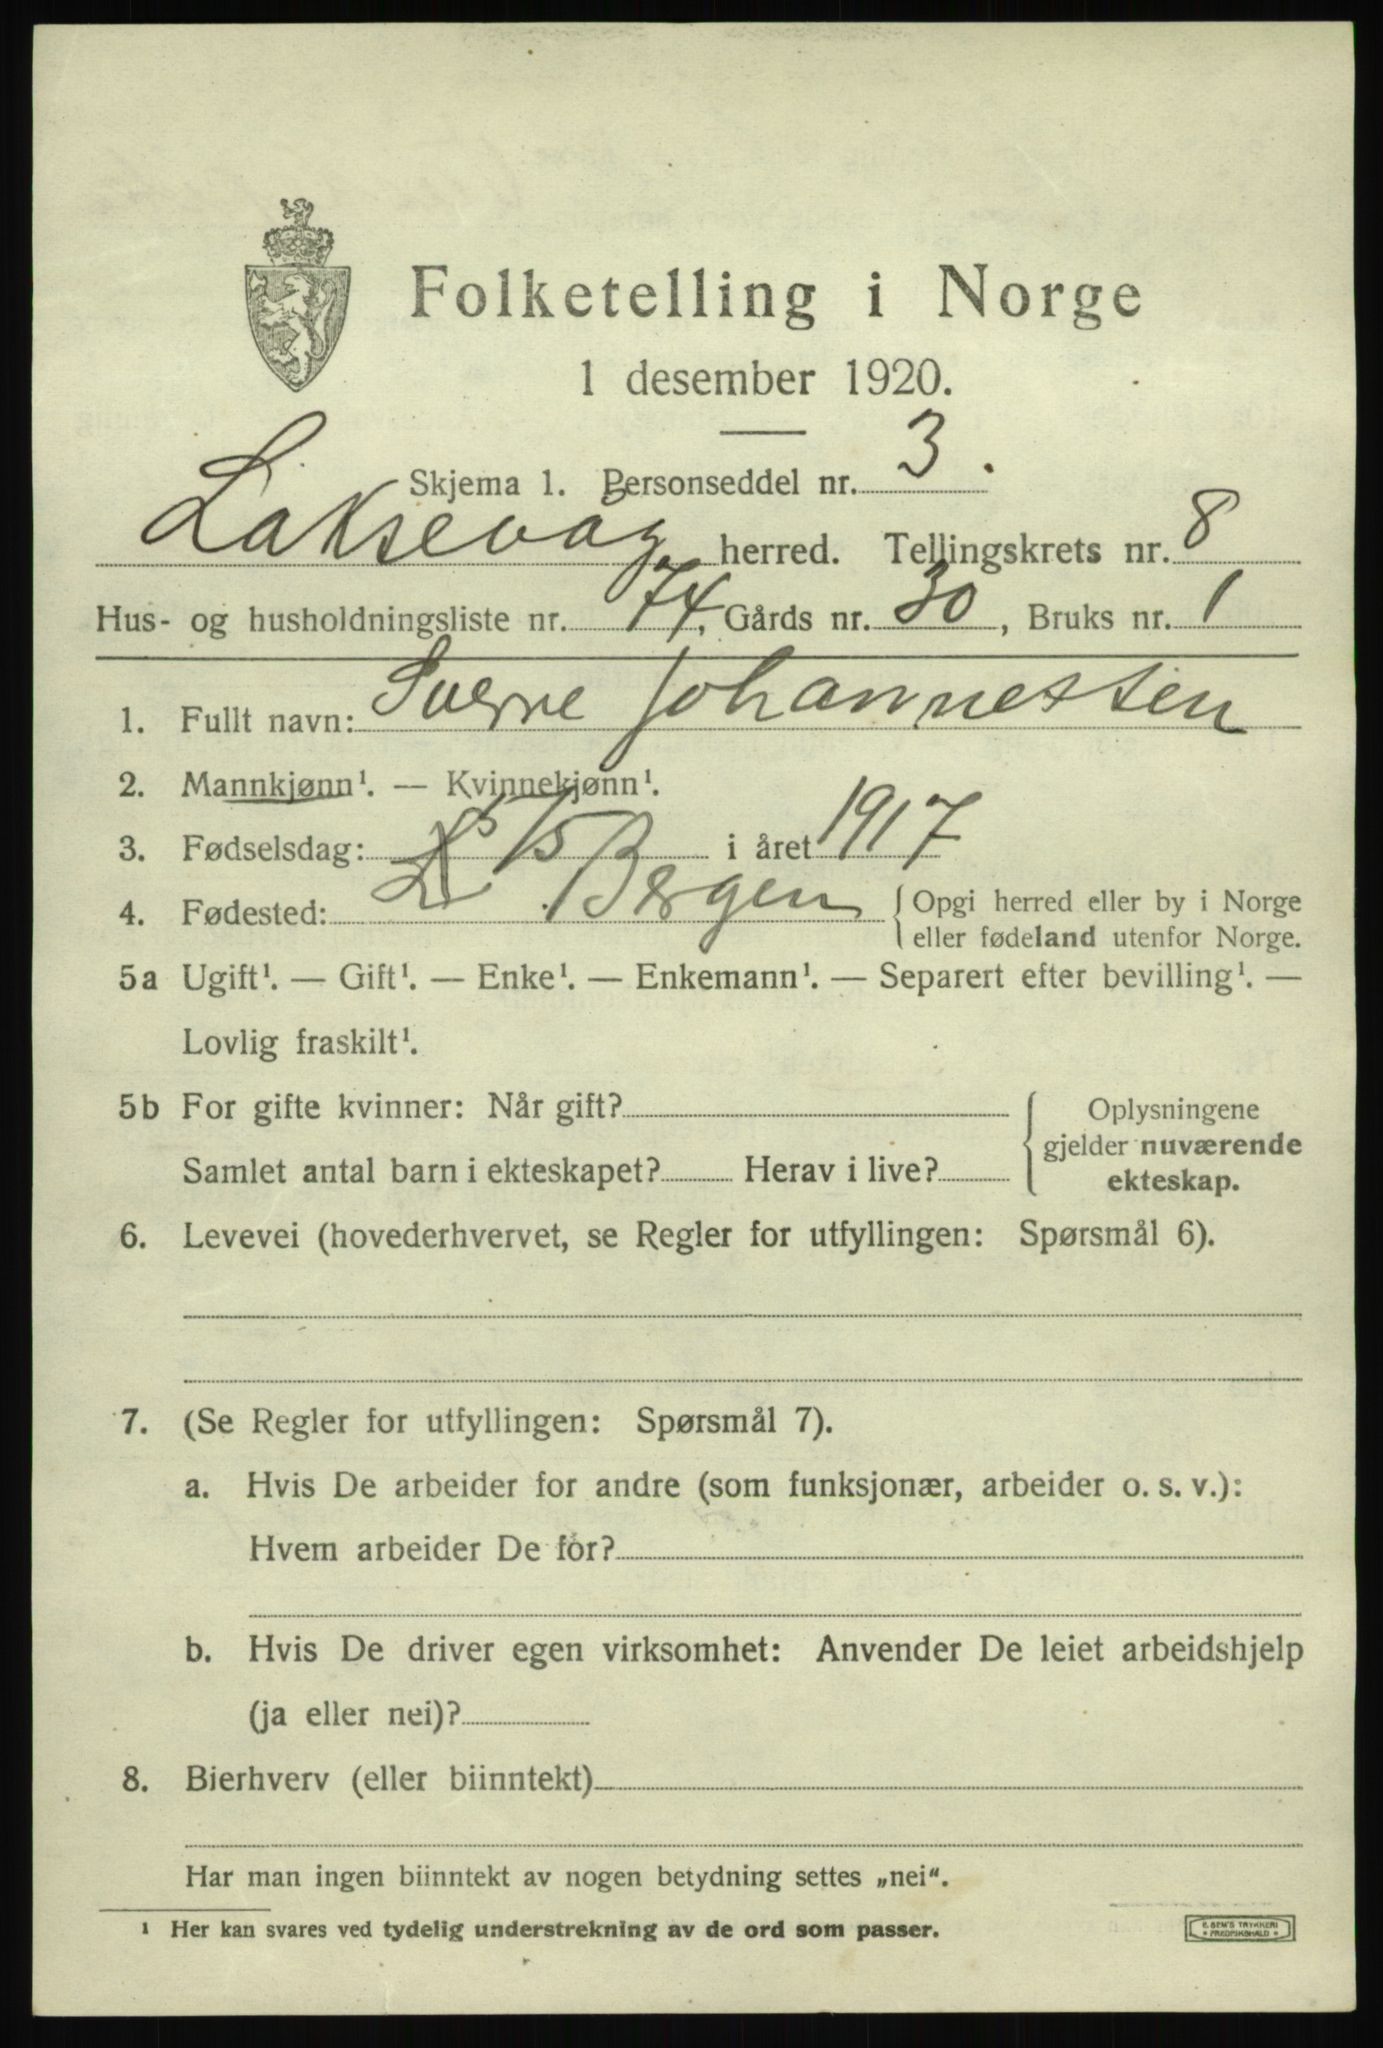 Folketelling i Norge
1 desember 1920.
Skjema 1. Personseddel nr. 3.
Laksevåg herred. Tellingskrets nr. 8
Hus- og husholdningsliste nr. 74, Gårds nr. 30, Bruks nr. 1
1. Fullt navn: Sverre Johannessen
2. Mannkjønn¹. — Kvinnekjønn¹.
3. Fødselsdag: /5 i året 1917
4. Fødested: Bergen { Opgi herred eller by i Norge
eller fødeland utenfor Norge.
5a Ugift¹. — Gift¹. — Enke¹. — Enkemann¹. — Separert efter bevilling¹. —
Lovlig fraskilt¹.
5b For gifte kvinner: Når gift? { Oplysningene
gjelder nuværende
Samlet antal barn i ekteskapet? Herav i live? ekteskap.
6. Levevei (hovederhvervet, se Regler for utfyllingen: Spørsmål 6).
7. (Se Regler for utfyllingen: Spørsmål 7).
a. Hvis De arbeider for andre (som funksjonær, arbeider o. s. v.):
Hvem arbeider De for?
b. Hvis De driver egen virksomhet: Anvender De leiet arbeidshjelp
(ja eller nei)?
8. Bierhverv (eller biinntekt)
Har man ingen biinntekt av nogen betydning settes „nei".
¹ Her kan svares ved tydelig understrekning av de ord som passer.
E. SEM'S TRYKKERI
* FREDRIKSHALD *